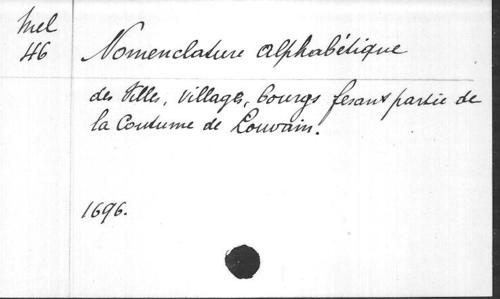 Mel
46
Nomenclature alphabétique
des Villes, villages, bourgs fesant partie de
la Coutume de Louvain.
1696.